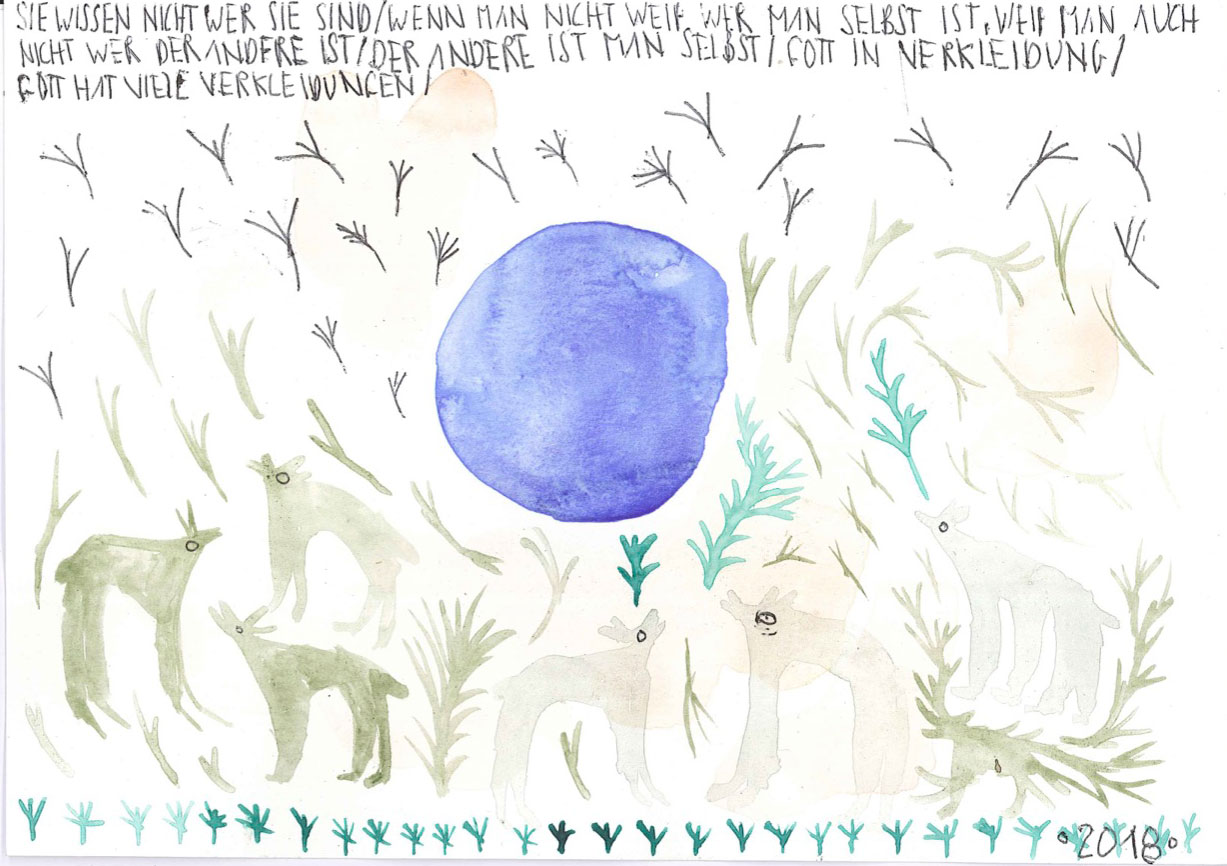 SIE WISSEN NICHT WER SIE SIND/WENN MAN NICHT WEIß WER MAN SELBST IST, WEIß MAN AUCH
NICHT WER DER ANDERE IST/DER ANDERE IST MAN SELBST/GOTT IN VERKLEIDUNG/
GOTT HAT VIELE VERKLEIDUNGEN/
2018